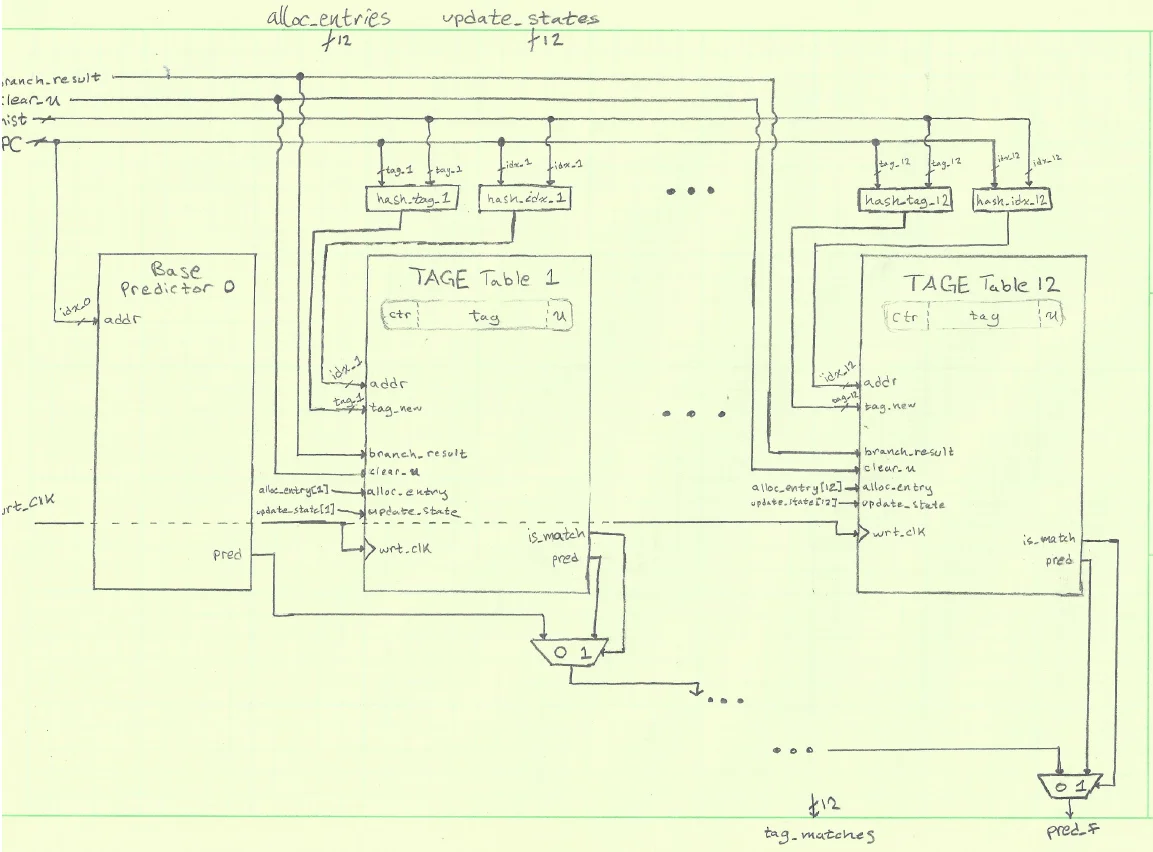 alloc_entries update_states
12 12
ranch_result
clear_u
hist
PC
tag_1 tag_1 idx_1 idx_1 tag_12 tag_12 idx_12 idx_12
hash_tag_1 hash_idx_1 ... hash_tag_12 hash_idx_12
Base
Predictor 0
idx_0
addr
TAGE Table 1
ctr tag u
idx_1
addr
tag_1
tag_new
branch_result
clear_u
alloc_entry[1] alloc_entry
update_state[1] update_state
wrt_clk
is_match
pred
...
TAGE Table 12
ctr tag u
idx_12
addr
tag_12
tag_new
branch_result
clear_u
alloc_entry[12] alloc_entry
update_state[12] update_state
wrt_clk
is_match
pred
wrt_clk
pred
0 1
...
...
0 1
12
tag_matches
pred_f